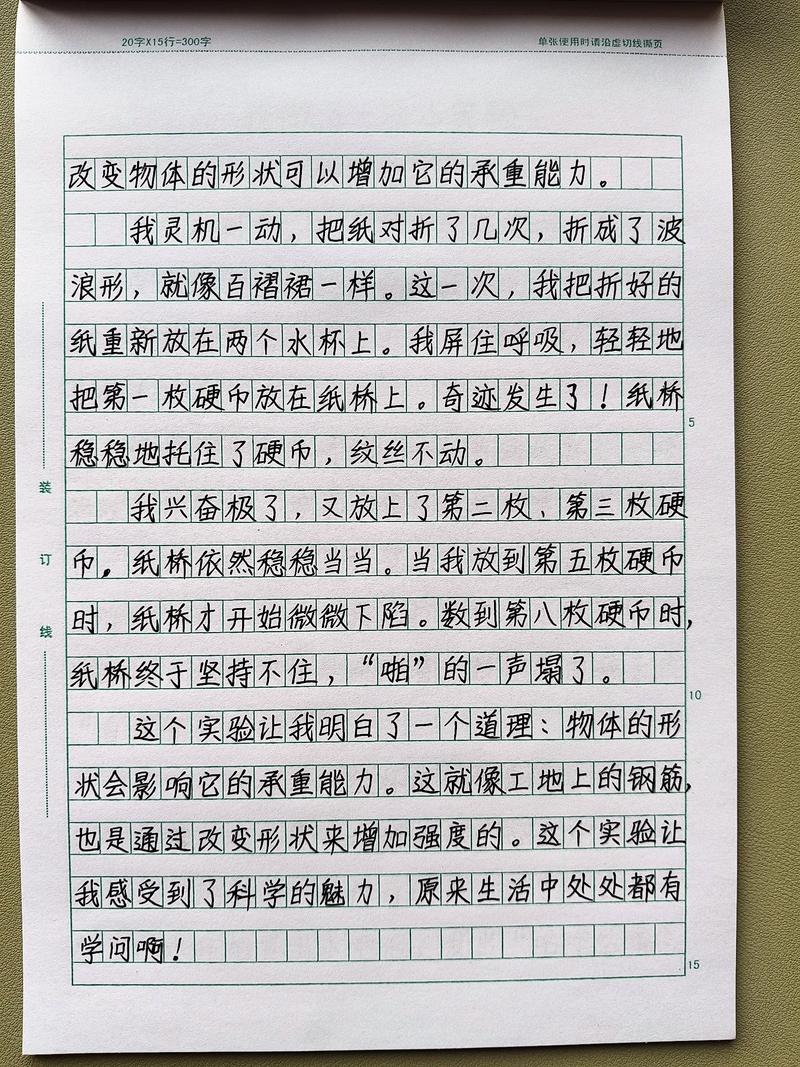 20字X15行=300字
单张使用时请沿虚切线撕页
改变物体的形状可以增加它的承重能力。
我灵机一动，把纸对折了几次，折成了波
浪形，就像百褶裙一样。这一次，我把折好的
纸重新放在两个水杯上。我屏住呼吸，轻轻地
把第一枚硬币放在纸桥上。奇迹发生了！纸桥
稳稳地托住了硬币，纹丝不动。
我兴奋极了，又放上了第二枚、第三枚硬
币，纸桥依然稳稳当当。当我放到第五枚硬币
时，纸桥才开始微微下陷。数到第八枚硬币时，
纸桥终于坚持不住，“啪”的一声塌了。
这个实验让我明白了一个道理：物体的形
状会影响它的承重能力。这就像工地上的钢筋，
也是通过改变形状来增加强度的。这个实验让
我感受到了科学的魅力，原来生活中处处都有
学问啊！
装
订
线
5
10
15